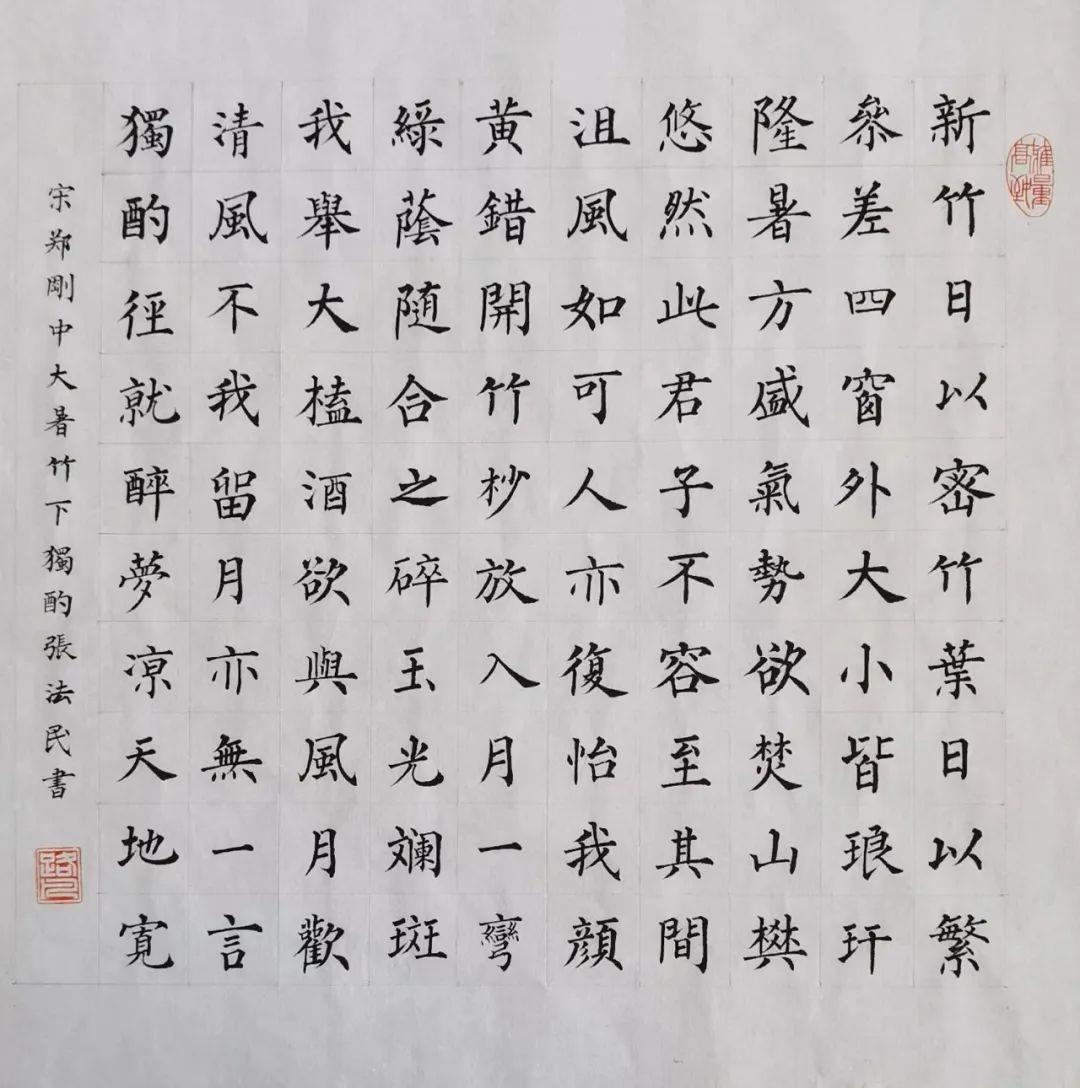 新竹日以密竹葉日以繁
參差四窗外大小皆琅玕
隆暑方盛氣勢欲焚山樊
悠然此君子不容至其間
沮風如可人亦復怡我顔
黄錯開竹杪放入月一彎
綠蔭隨合之碎玉光斕斑
我舉大榼酒欲與風月歡
清風不我留月亦無一言
獨酌徑就醉夢凉天地寬
宋郑剛中大暑竹下獨酌張法民書